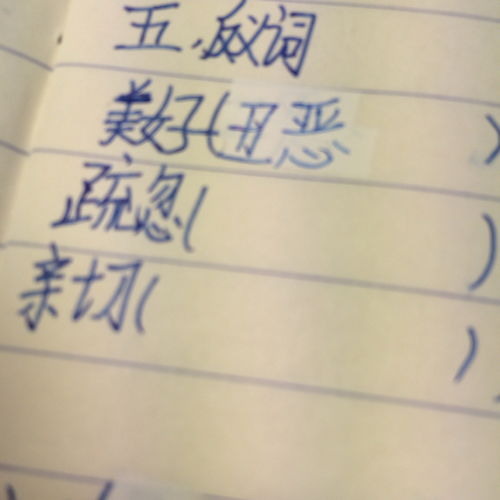 五、反义词
美好(丑恶)
疏忽( )
亲切( )